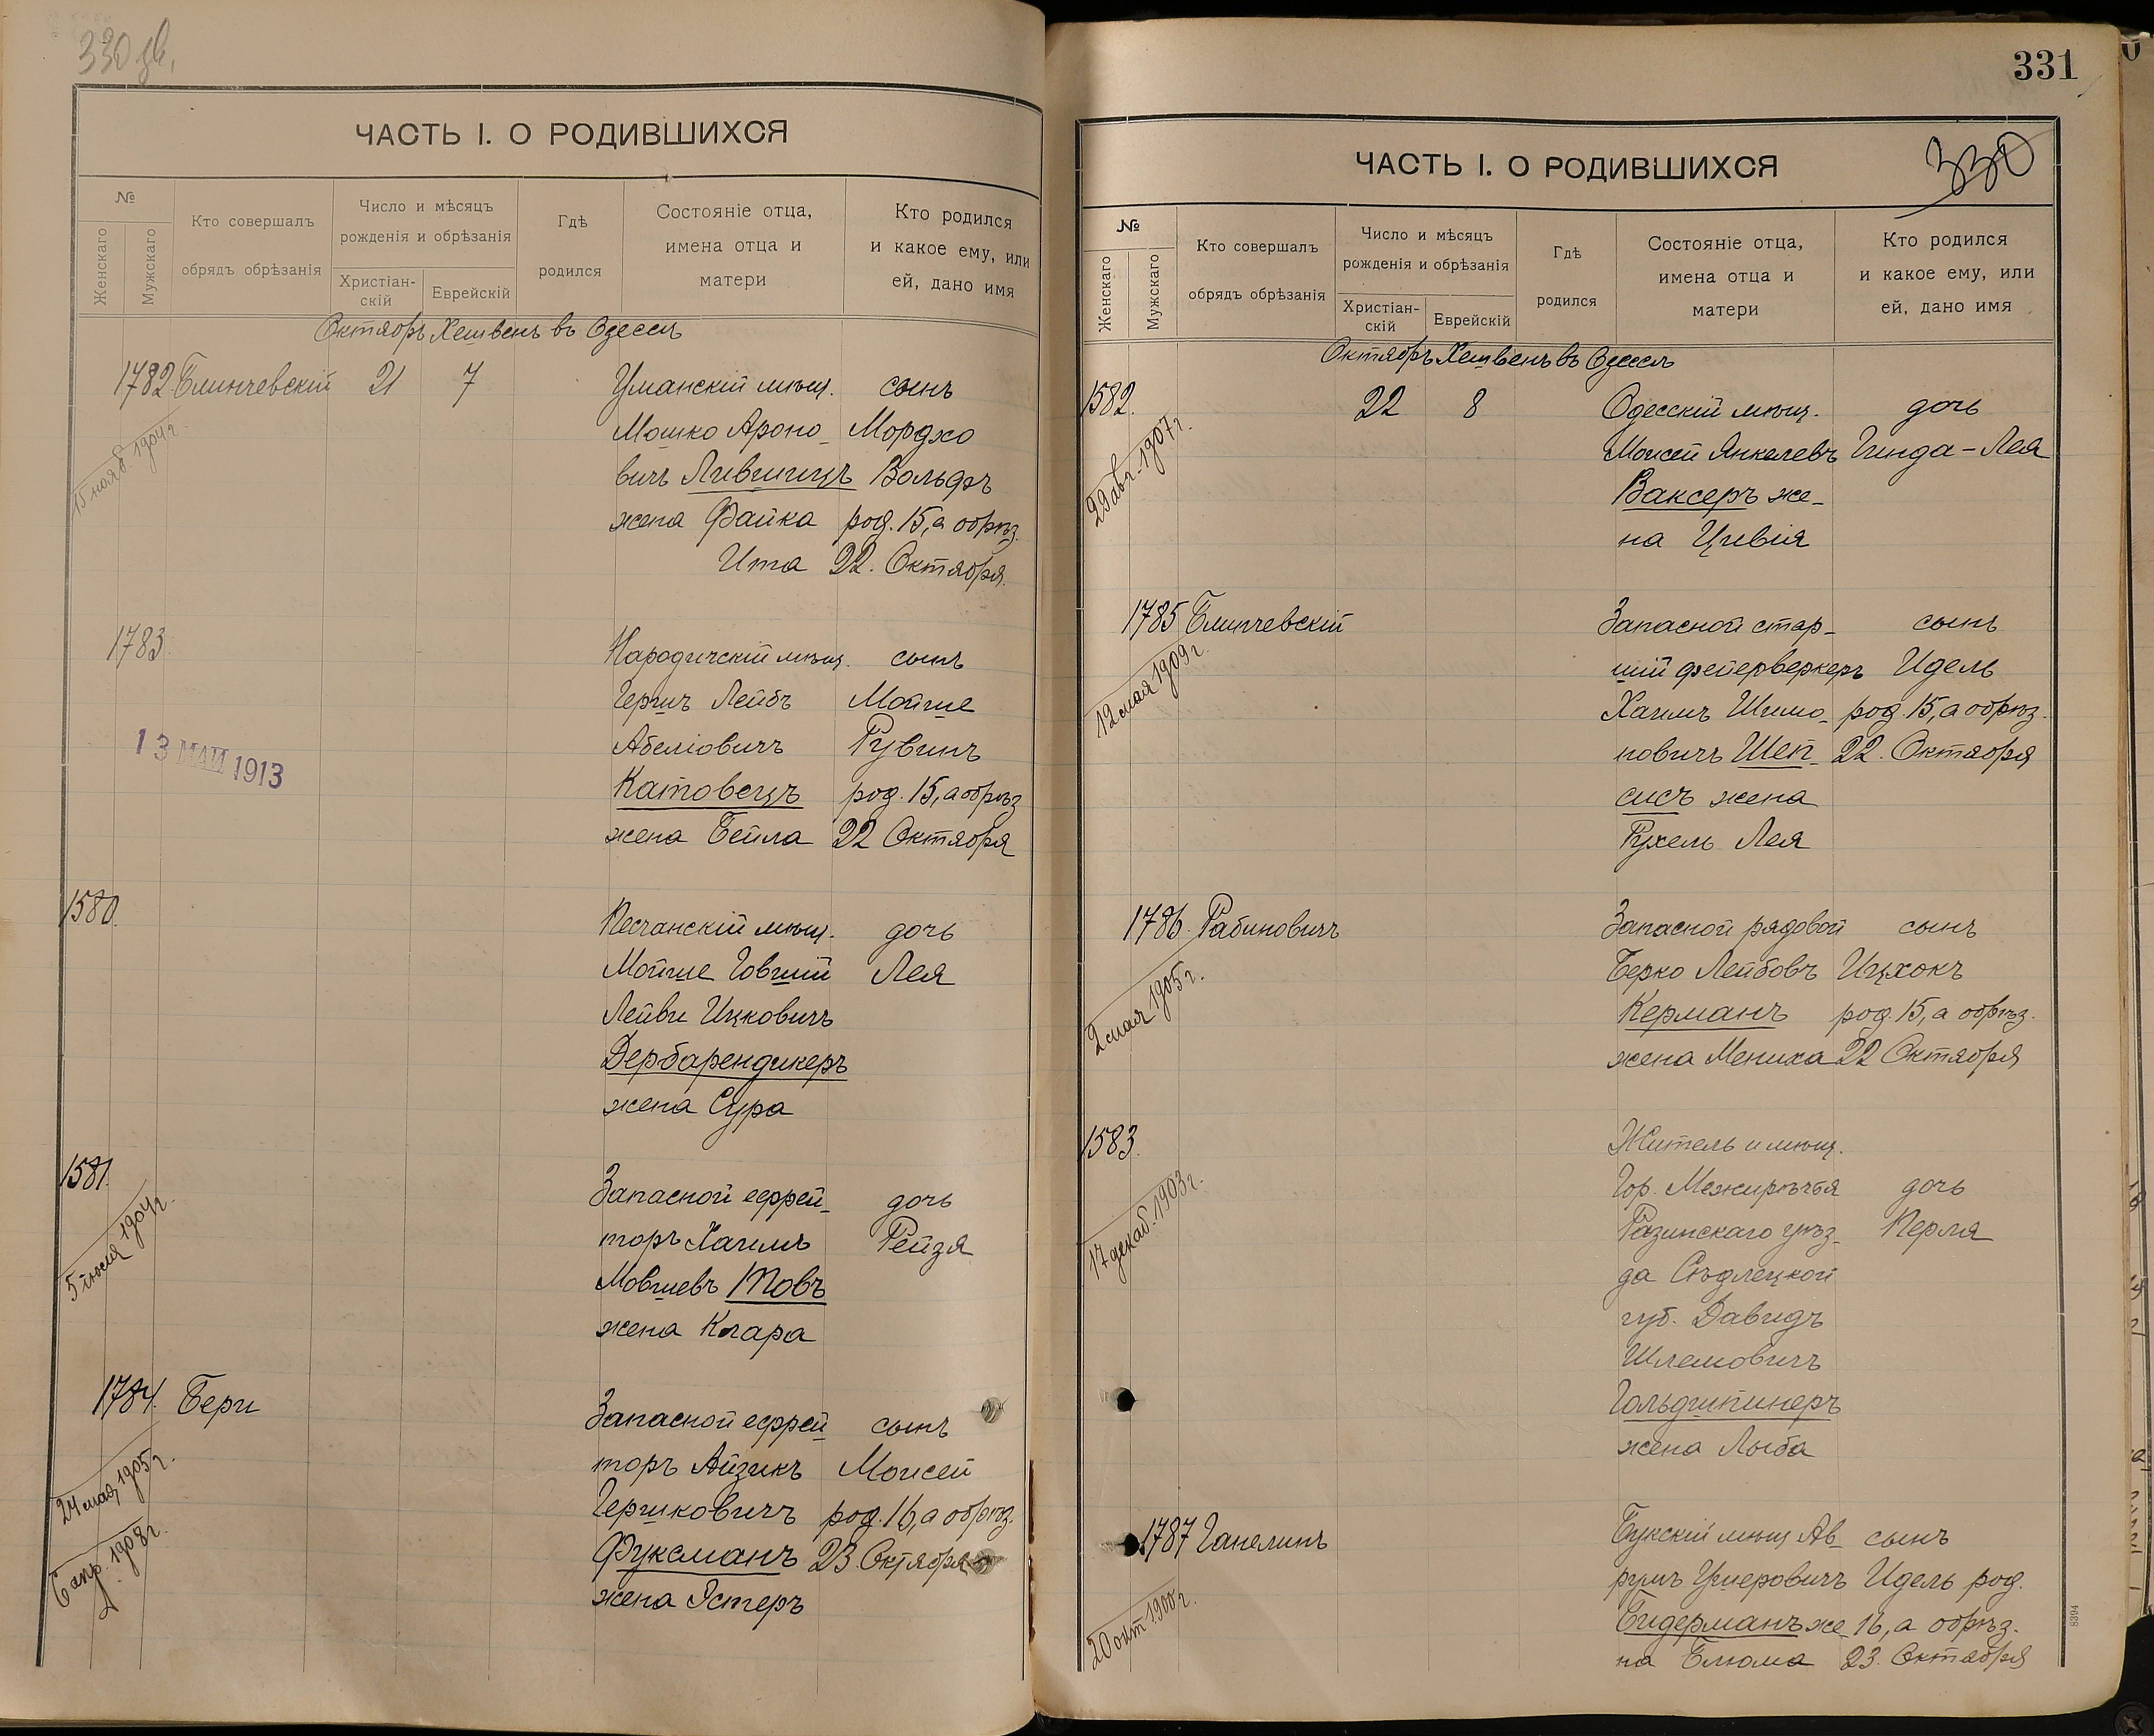 330 зв.
ЧАСТЬ I. О РОДИВШИХСЯ
№
Женскаго
Мужскаго
Кто совершалъ
обрядъ обрѣзанія
Число и мѣсяцъ
рожденія и обрѣзанія
Христіан-
скій
Еврейскій
Гдѣ
родился
Состояніе отца,
имена отца и
матери
Кто родился
и какое ему, или
ей, дано имя
Октябрь Хешвенъ въ Одессѣ
1782 Блинчевскій 21 7 Уманскій мѣщ. сынъ
Мошко Ароно- Мордхо
вичъ Лившицъ Вольфъ
жена Файка род. 15, а обрѣз.
Ита 22. Октября.
15 нояб. 1904 г.
1783. Народичскій мѣщ. сынъ
Гершъ Лейбъ Мойше
Абеліовичъ Рувинъ
Катовецъ род. 15, а обрѣз
жена Бейла 22 Октября
13 МАЙ 1913
1580. Песчанскій мѣщ. дочь
Мойше Говший Лея
Лейви Ицковичъ
Дербарендикеръ
жена Сура
1581. Запасной ефрей- дочь
торъ Хаимъ Рейзя
Мовшевъ Товъ
жена Клара
5 іюля 1904 г.
1784. Бери Запасной ефрей сынъ
торъ Айзикъ Моисей
Гершковичъ род. 16, а обрѣз.
Фуксманъ 23. Октября
жена Эстеръ
24 мая 1905 г.
6 апр. 1908 г.
331
330
ЧАСТЬ I. О РОДИВШИХСЯ
№
Женскаго
Мужскаго
Кто совершалъ
обрядъ обрѣзанія
Число и мѣсяцъ
рожденія и обрѣзанія
Христіан-
скій
Еврейскій
Гдѣ
родился
Состояніе отца,
имена отца и
матери
Кто родился
и какое ему, или
ей, дано имя
Октябрь Хешвенъ въ Одессѣ
1582. 22 8 Одесскій мѣщ. дочь
Моисей Янкелевъ Гинда-Лея
Ваксеръ же-
на Цивія
29 авг. 1907 г.
1785 Блинчевскій Запасной стар- сынъ
шій фейерверкеръ Идель
Хаимъ Шимо- род. 15, а обрѣз.
новичъ Шеп- 22. Октября
сисъ жена
Рухель Лея
12 мая 1909 г.
1786. Рабиновичъ Запасной рядовой сынъ
Берко Лейбовъ Ицхокъ
Керманъ род. 15, а обрѣз.
жена Мениха 22 Октября
2 мая 1905 г.
1583. Житель и мѣщ.
Гор. Межирѣчья дочь
Разинскаго уѣз- Перля
да Сѣдлецкой
губ. Давидъ
Шлемовичъ
Гольдшпинеръ
жена Люба
17 декаб. 1903 г.
1787 Ганелинъ Букскій мѣщ Ав- сынъ
румъ Ушеровичъ Идель род.
Бидерманъ же- 16, а обрѣз.
на Блюма 23. Октября
20 окт 1900 г.
8394